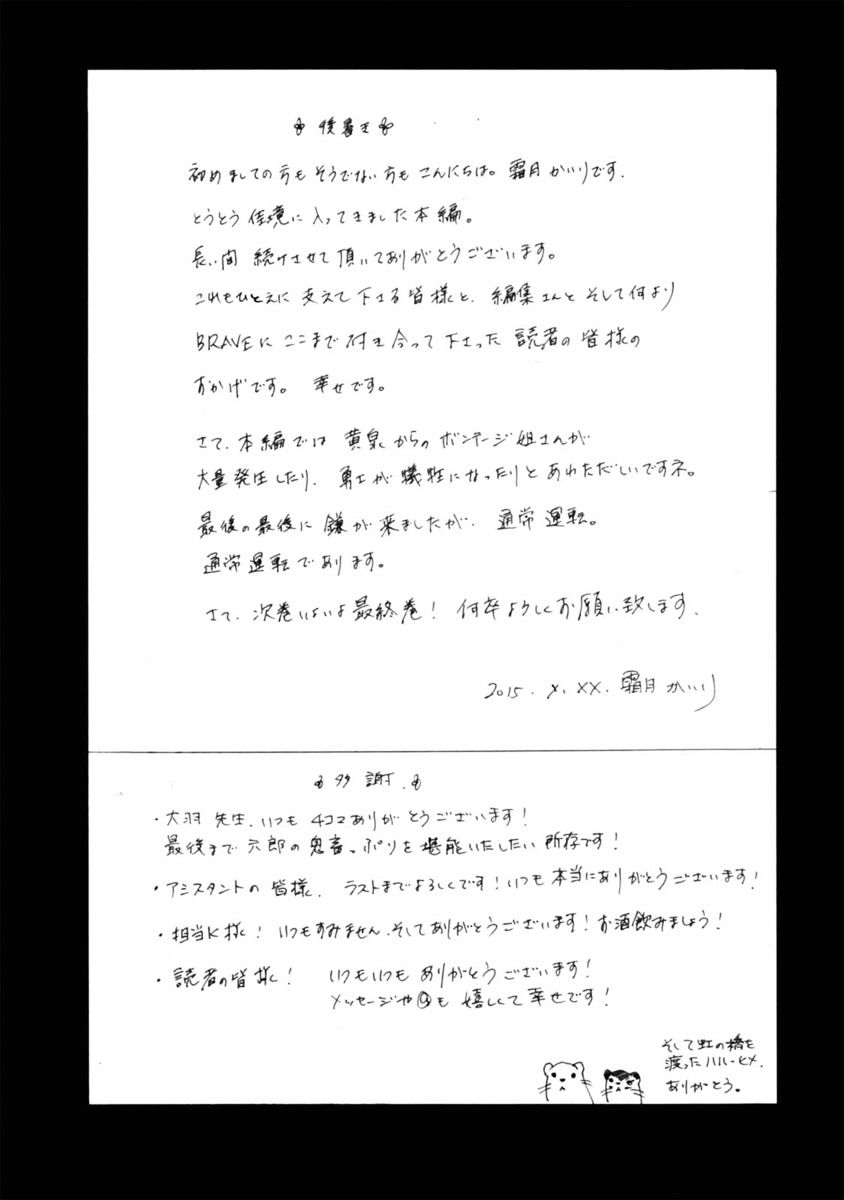 後書き
初めましての方もそうでない方もこんにちは。霜月かいりです.
とうとう佳境に入ってきました本編。
長い間 続けさせて頂いてありがとうございます。
これもひとえに 支えて下さる皆様と、編集さんと そして何より
BRAVEに ここまで付き合って下さった 読者の皆様の
おかげです。 幸せです。
さて、本編では 黄泉からのボンテージ姐さんが
大量発生したり、勇士が犠牲になったりと あわただしいですネ。
最後の最後に 鎌が来ましたが、通常運転。
通常運転であります。
さて、次巻いよいよ最終巻! 何卒よろしくお願い致します.
2015. x. xx. 霜月かいり
多謝.
・大羽 先生、いつも 4コマありがとうございます!
最後まで 六郎の鬼畜っぷりを 堪能いたしたい 所存です!
・アシスタントの 皆様、 ラストまでよろしくです!いつも本当にありがとうございます!
・担当K様! いつもすみません、そしてありがとうございます! お酒飲みましょう!
・読者の皆様! いつもいつも ありがとうございます!
メッセージや も 嬉しくて 幸せです!
そして虹の橋を
渡ったハル・ヒメ.
ありがとう。